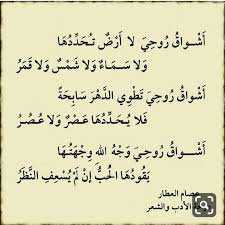 أَشْوَاقُ رُوحِيَ لا أَرْضٌ تُحَدِّدُهَا
وَلا سَمَاءٌ وَلا شَمْسٌ وَلا قَمَرُ
أَشْوَاقُ رُوحِيَ تَطْوِي الدَّهْرَ سَابِحَةً
فَلا يُحَدِّدُهَا عَصْرٌ وَلا عُصُرُ
أَشْوَاقُ رُوحِيَ وَجْهُ اللهِ وِجْهَتُهَا
يَقُودُهَا الحُبُّ إِنْ لَمْ يُسْعِفِ النَّظَرُ
عصام العطار
الأدب والشعر